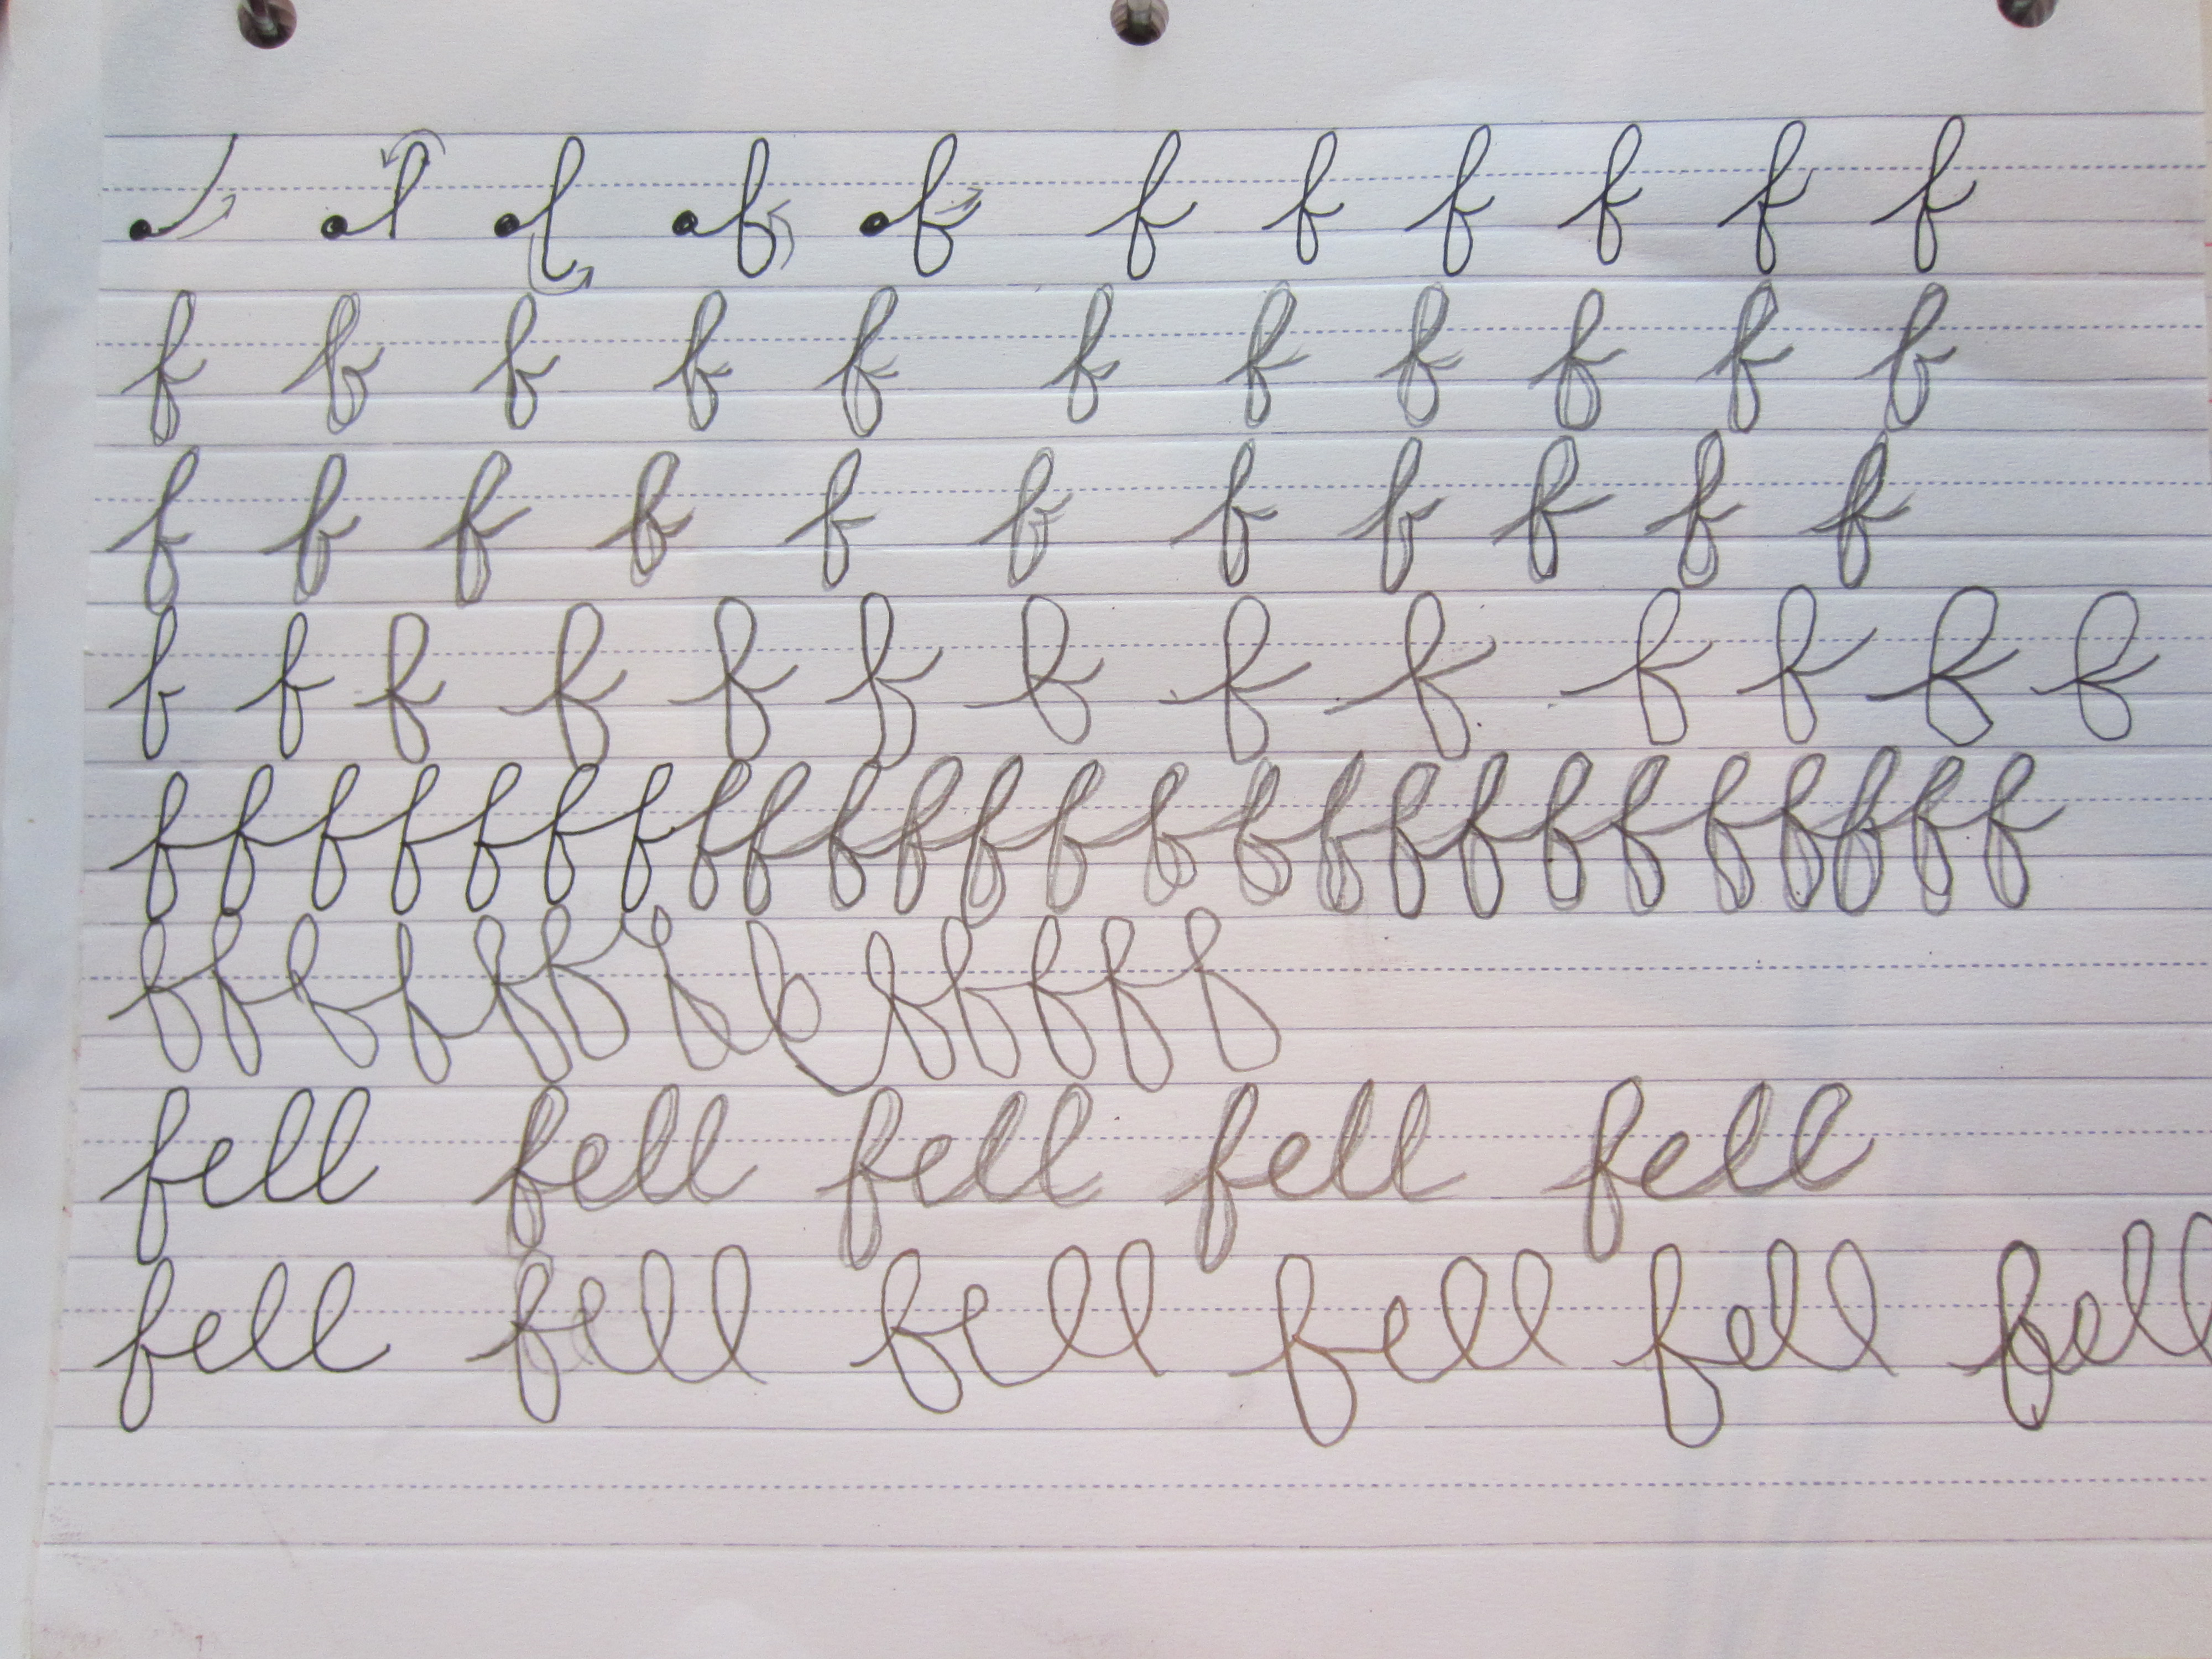 f f f f f f f
f f f f f f f f f f f
f f f f f f f f f f f
f f f f f f f f f f f f f
fffffffffffffffffffffffff
fffffffffffff
fell fell fell fell fell
fell fell fell fell fell fell